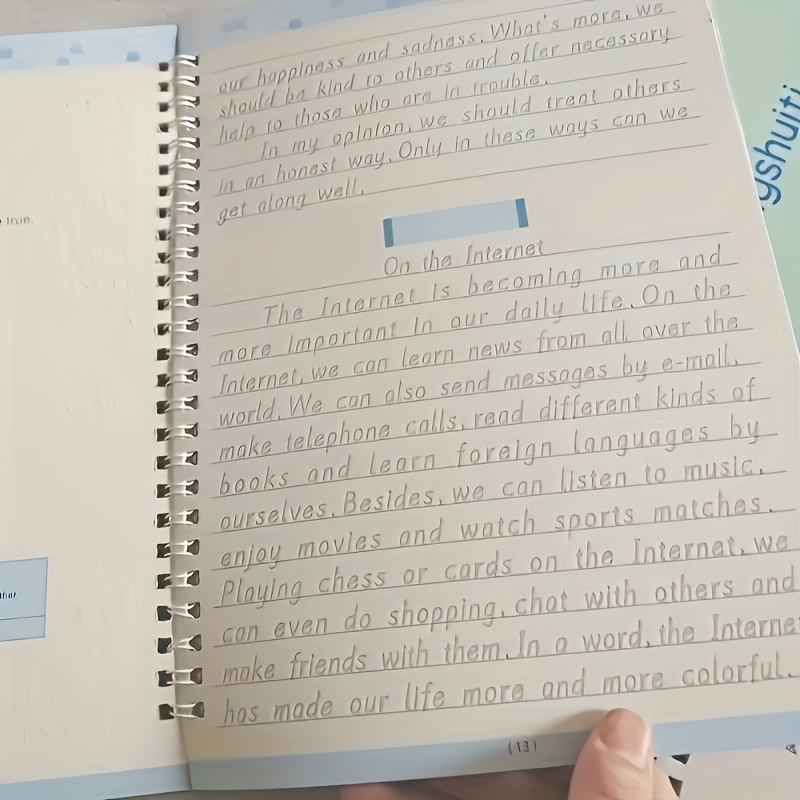 our happiness and sadness. What's more, we
should be kind to others and offer necessary
help to those who are in trouble.
In my opinion, we should treat others
in an honest way. Only in these ways can we
get along well.
On the Internet
The Internet is becoming more and
more important in our daily life. On the
Internet, we can learn news from all over the
world. We can also send messages by e-mail,
make telephone calls, read different kinds of
books and learn foreign languages by
ourselves. Besides, we can listen to music,
enjoy movies and watch sports matches.
Playing chess or cards on the Internet, we
can even do shopping, chat with others and
make friends with them. In a word, the Interne
has made our life more and more colorful.
(13)
gshuiti